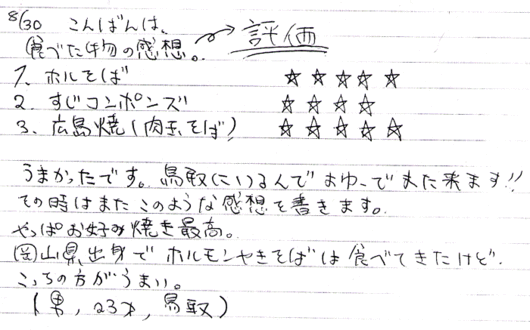 8/30 こんばんは、
食べた物の感想。→ 評価
1. ホルそば ☆☆☆☆☆
2. すじコンポンズ ☆☆☆☆
3. 広島焼(肉玉、そば) ☆☆☆☆☆
うまかったです。鳥取にいるんで まゆーでまた来ます!!
その時はまた このような感想を書きます。
やっぱお好み焼き最高。
岡山県出身で ホルモンやきそばは 食べてきたけど
こっちの方がうまい。
(男, 23才, 鳥取)